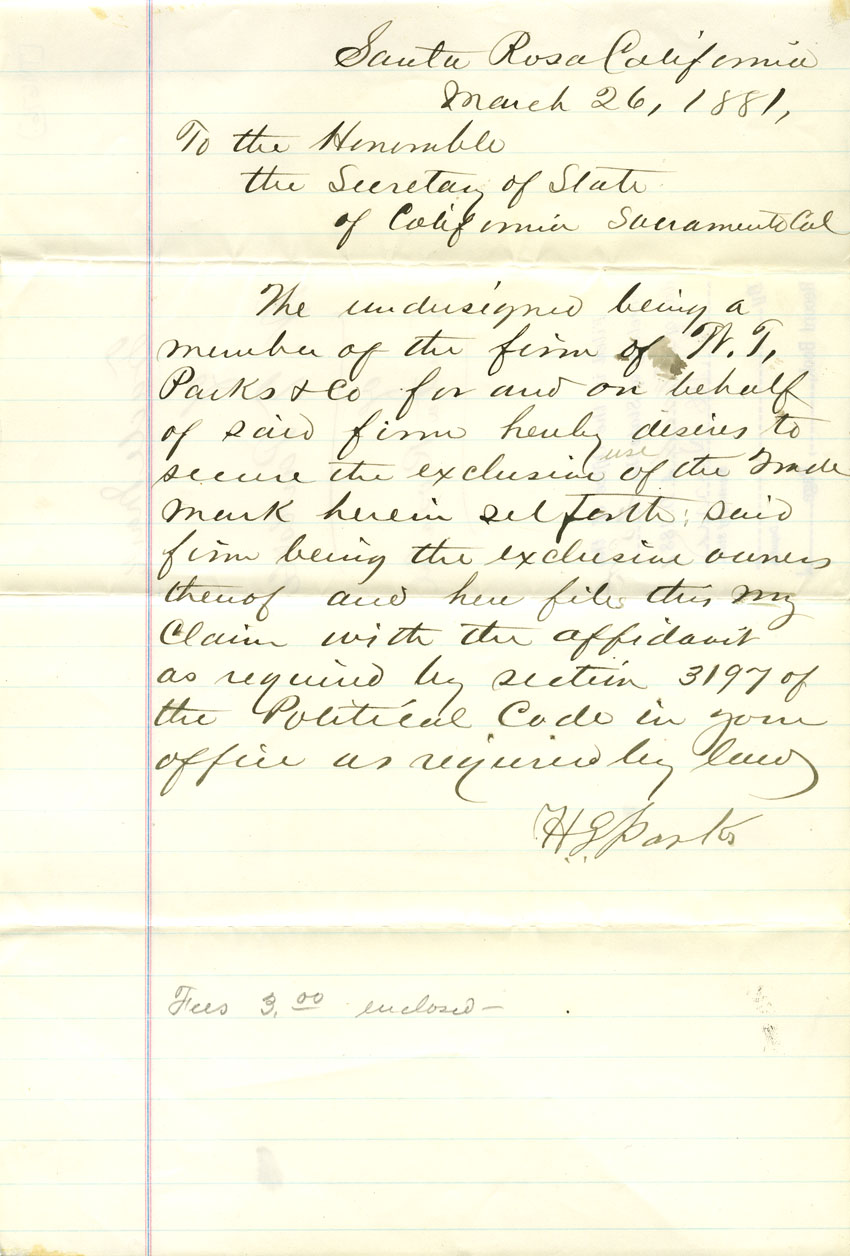 Santa Rosa California
March 26, 1881,
To the Honorable
the Secretary of State
of California Sacramento Cal
The undersigned being a
member of the firm of W. T.
Parks & Co for and on behalf
of said firm hereby desires to
secure the exclusive use of the Trade
Mark herein set forth; said
firm being the exclusive owners
thereof and here files this my
Claim with the affidavit
as required by section 3197 of
the Political Code in your
office as required by law
H G Parks
Fees 3.00 enclosed—